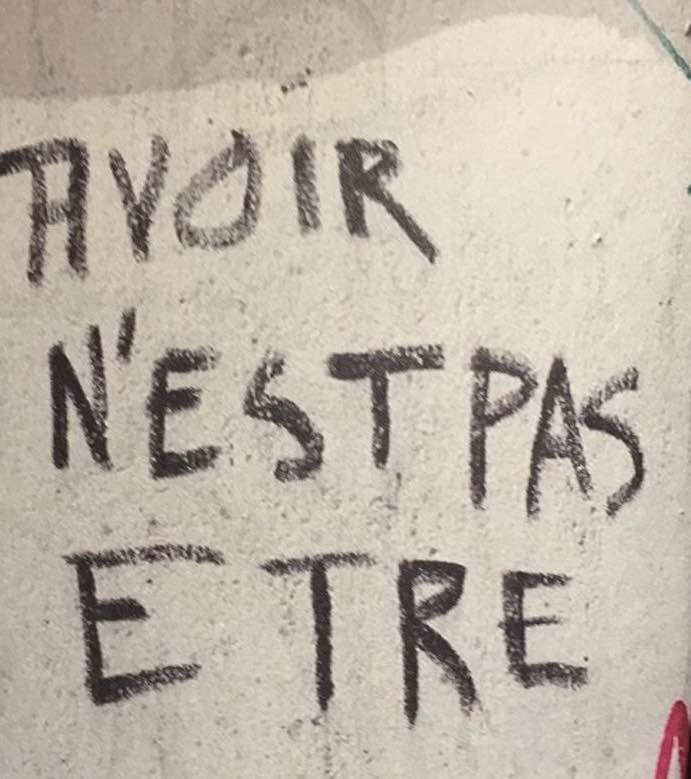 AVOIR
N'EST PAS
ETRE